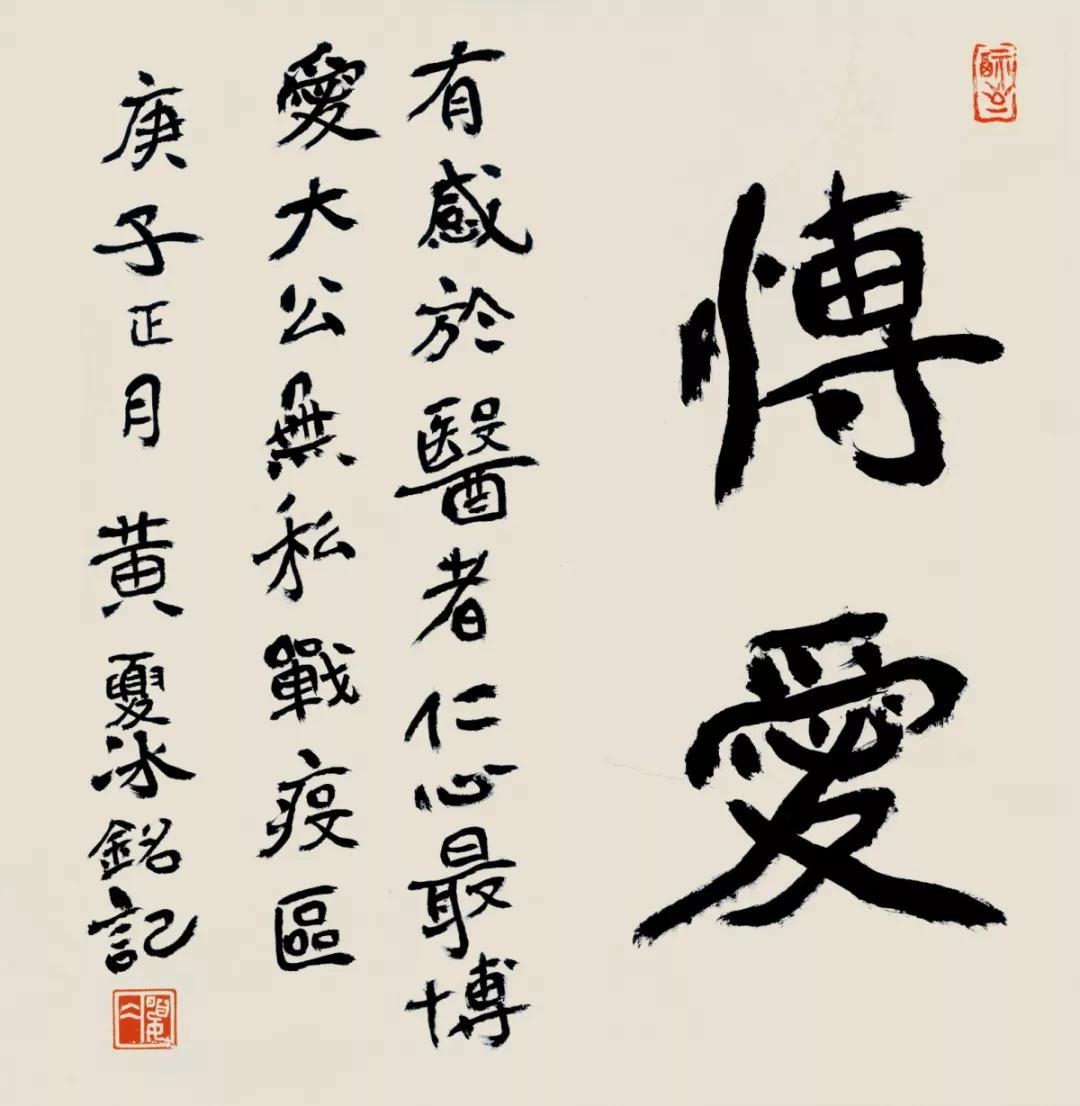 博愛
有感於醫者仁心最博
愛大公無私戰疫區
庚子正月黄夏冰銘記